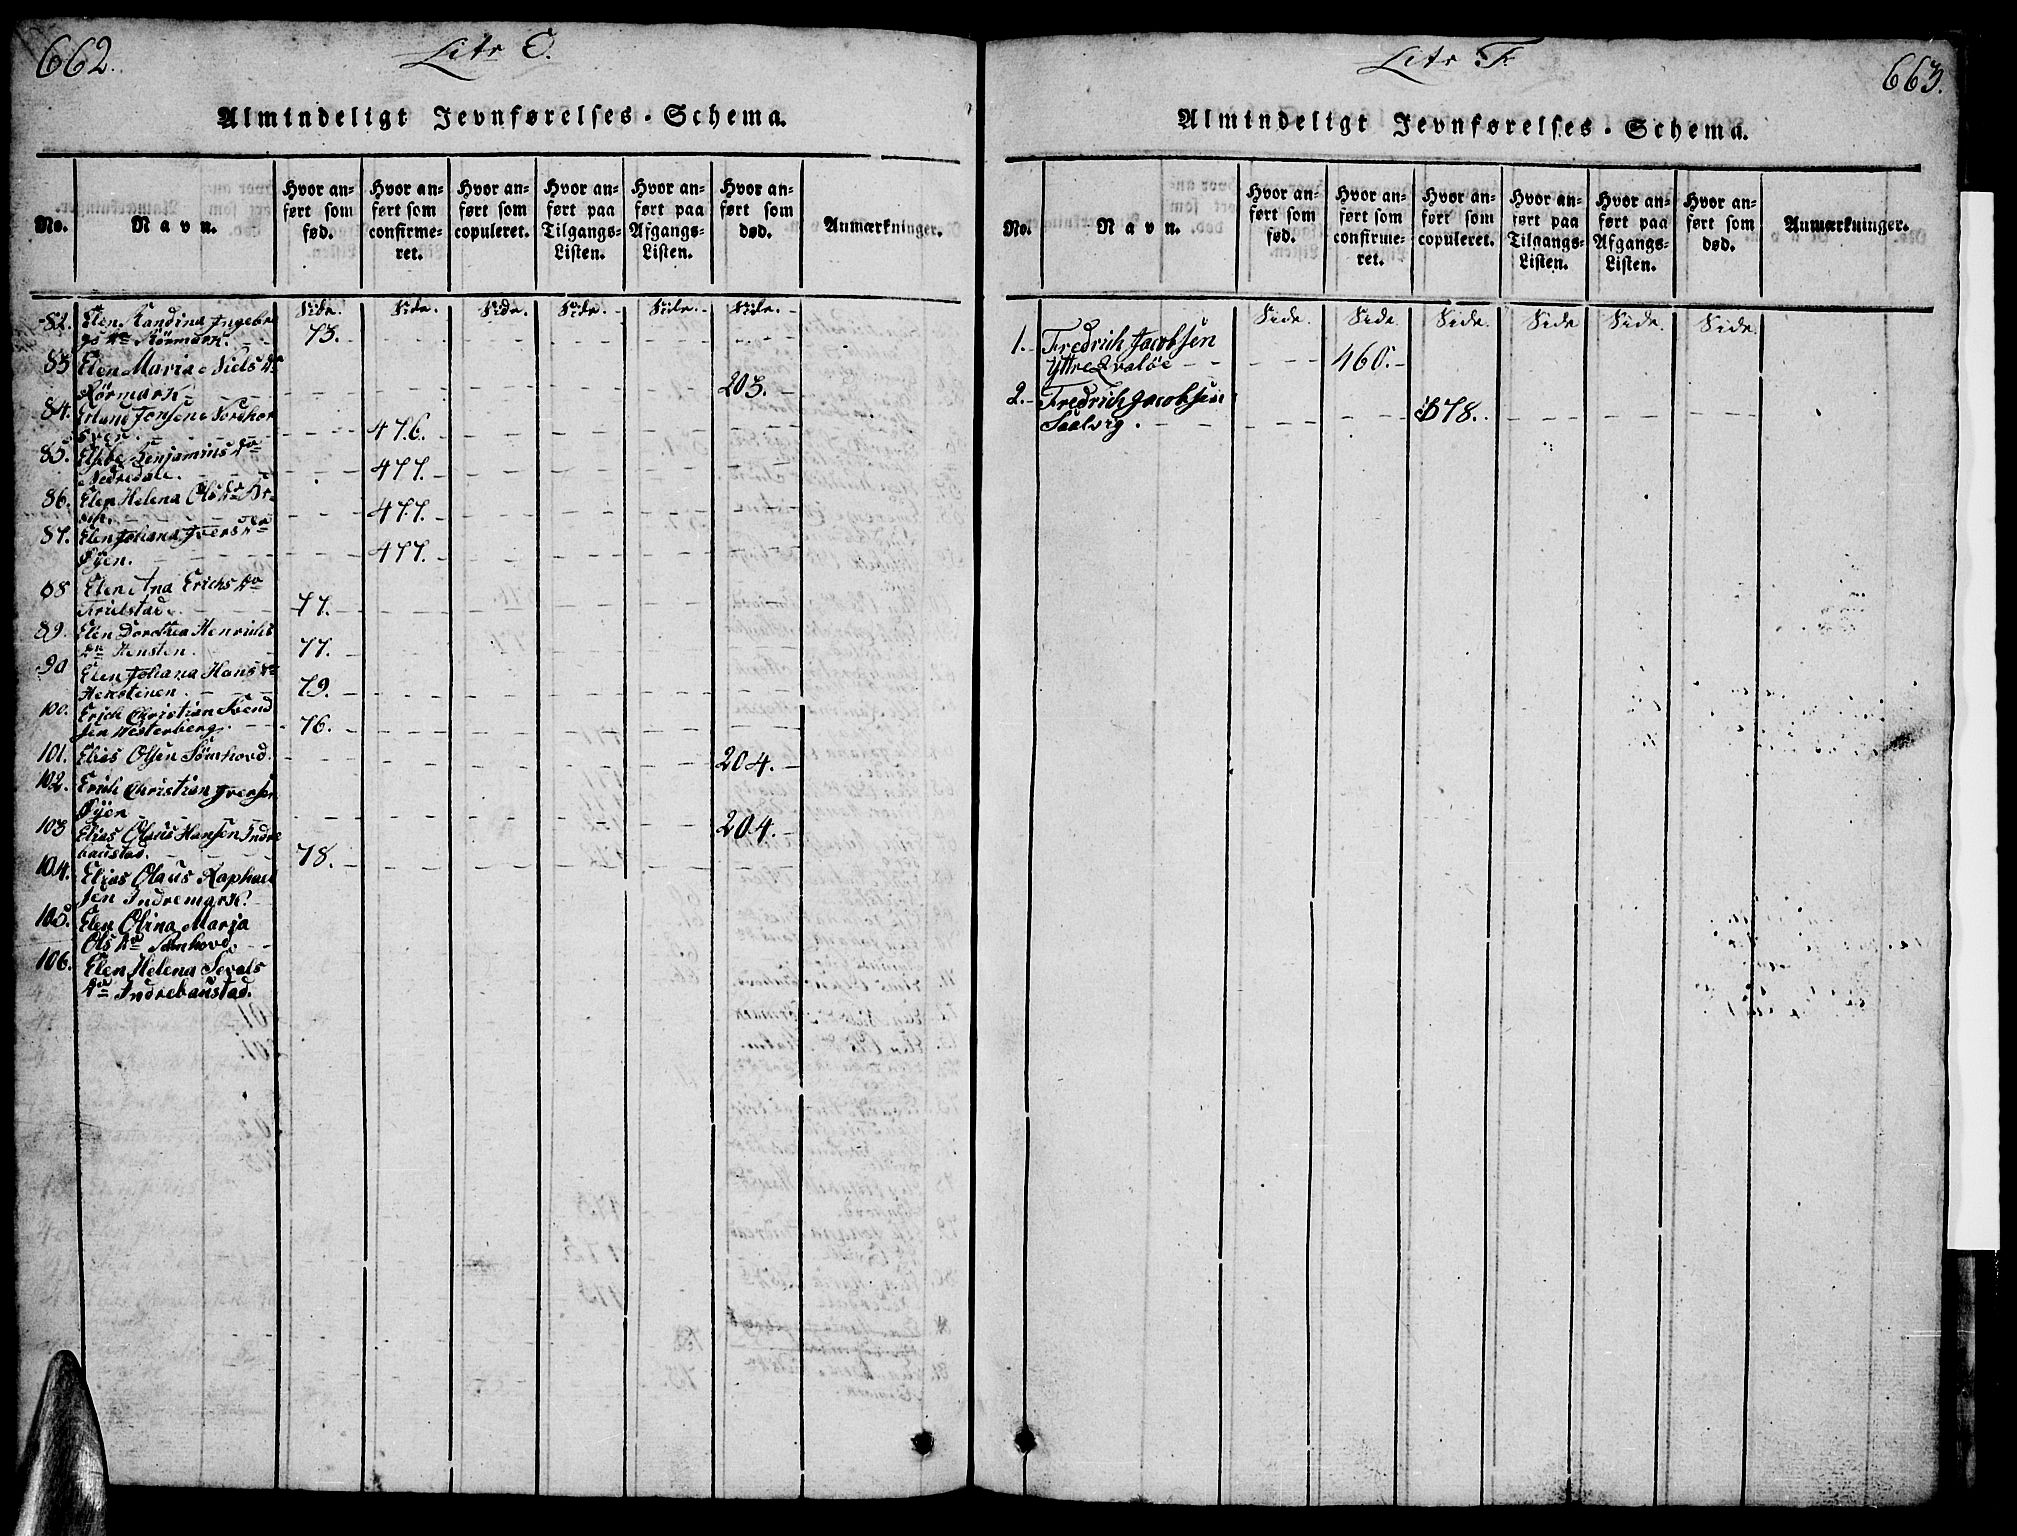 662.
Litr E.
Almindeligt Jevnførelses-Schema.
No.
Navn.
Hvor an-
ført som
fød.
Hvor an-
ført som
confirme-
ret.
Hvor an-
ført som
copuleret.
Hvor an-
ført paa
Tilgangs-
Listen.
Hvor an-
ført paa
Afgangs-
Listen.
Hvor an-
ført som
død.
Anmærkninger.
Side. Side. Side. Side. Side. Side.
82. Elen Randina Ingebr
73.
83 Elen Maria Niels Dr
203.
84.
476.
85. Benjamins Dr
477.
86. Elen Helena Ols Dr
477.
87. Elen Johana Ivers Dr
Øyen. 477.
88 Elen Ana Erichs Dr
77.
89. Elen Dorothea Henrichs
Dr Hensten. 77.
90 Elen Johana Hans Dr
79.
100. Erich Christian Svend
sen Westerberg. 76.
101. Elias Olsen Sømhovd. 204.
102. Erich Christian Iversen
Øyen 204.
103 Elias Olaus Hansen Indre
baustad. 78.
104. Elias Olaus Raphael
sen Indremark.
105. Elen Olina Maria
Ols Dr Sømhovd.
106. Elen Helena Sevals
Dr Indrebaustad.
663.
Litr F.
Almindeligt Jevnførelses-Schema.
No.
Navn.
Hvor an-
ført som
fød.
Hvor an-
ført som
confirme-
ret.
Hvor an-
ført som
copuleret.
Hvor an-
ført paa
Tilgangs-
Listen.
Hvor an-
ført paa
Afgangs-
Listen.
Hvor an-
ført som
død.
Anmærkninger.
Side. Side Side. Side Side. Side
1. Fredrich Jacobsen
Yttre Qvaløe 460.
2. Fredrich Jacobsen
Saalvig. 578.